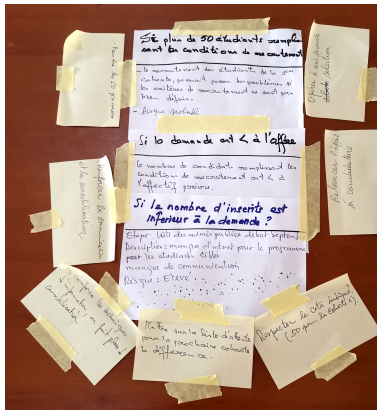 Si plus de 50 étudiants remplis-
sent les conditions de recrutement
- le recrutement des étudiants de la 2ème
cohorte, pourrait poser des problèmes si
les critères de recrutement ne sont pas
bien définis.
- Risque probable
Si la demande est < à l'offre
le nombre de candidat remplissant les
conditions de recrutement est < à
l'effectif prévu.
Si le nombre d'inscrits est
inférieur à la demande ?
Etape: liste des admis publiée début septembre
Description: manque d'intérêt pour le programme
pour les étudiants cibles
manque de communication
Risque: Elevé
Relancer l'appel
à candidature
Renforcer la communication
et la sensibilisation
Mettre sur la liste d'attente
pour la prochaine cohorte
la différence.
Respecter le quota indiqué
(50 pour la cohorte 1)